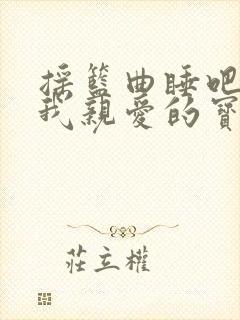 搖籃曲睡吧
我親愛的寶
莊立權